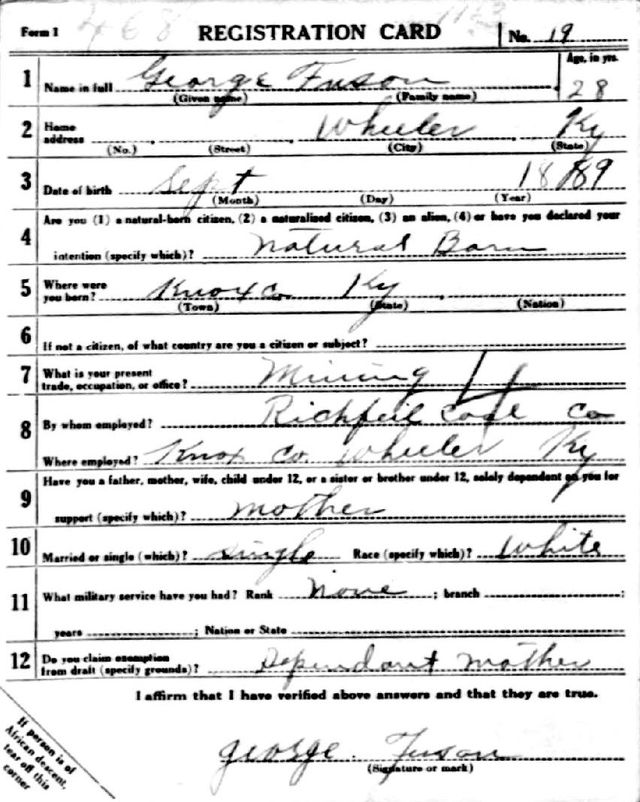 468
Form 1 REGISTRATION CARD No. 19
1 Name in full George Fuson Age, in yrs. 28
(Given name) (Family name)
2 Home address Wheeler Ky
(No.) (Street) (City) (State)
3 Date of birth Sept 1889
(Month) (Day) (Year)
4 Are you (1) a natural-born citizen, (2) a naturalized citizen, (3) an alien, (4) or have you declared your
intention (specify which)? Natural Born
5 Where were you born? Knox Co Ky
(Town) (State) (Nation)
6 If not a citizen, of what country are you a citizen or subject?
7 What is your present trade, occupation, or office? Mining 4
8 By whom employed? Coal Co
Where employed? Knox Co Wheeler Ky
9 Have you a father, mother, wife, child under 12, or a sister or brother under 12, solely dependent on you for
support (specify which)? Mother
10 Married or single (which)? Single Race (specify which)? White
11 What military service have you had? Rank None ; branch ;
years ; Nation or State
12 Do you claim exemption from draft (specify grounds)? Dependant Mother
I affirm that I have verified above answers and that they are true.
George Fuson
(Signature or mark)
If person is of
African descent,
tear off this
corner